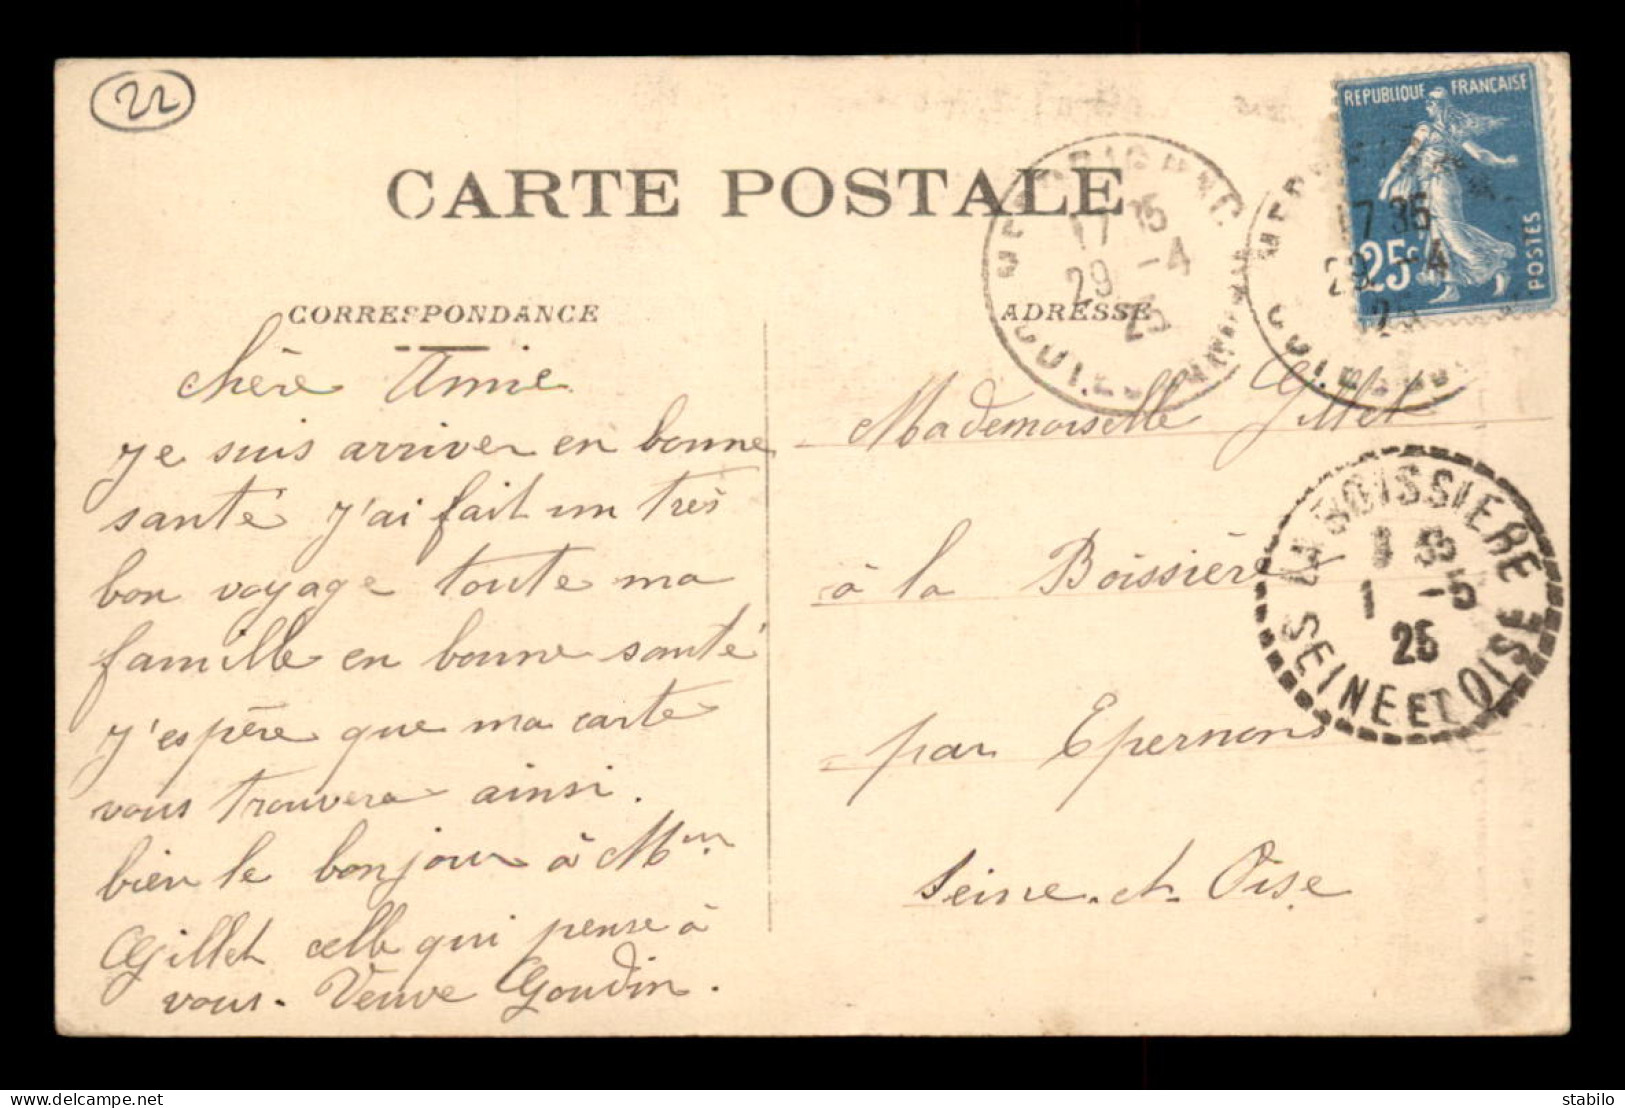 22
CARTE POSTALE
REPUBLIQUE FRANÇAISE
25c
POSTES
17 35
29 -4
25
17 35
29 -4
25
CORRESPONDANCE
ADRESSE
chère Amie
Je suis arriver en bonne
santé J'ai fait un très
bon voyage toute ma
famille en bonne santé
J'espère que ma carte
vous trouvera ainsi.
bien le bonjour à Mm
Gillet celle qui pense à
vous. Veuve Goudin.
Mademoiselle Gillet
à la Boissière
par Epernons
Seine-et-Oise
LA BOISSIERE
1 -5
25
SEINE ET OISE
delcampe.net
stabilo